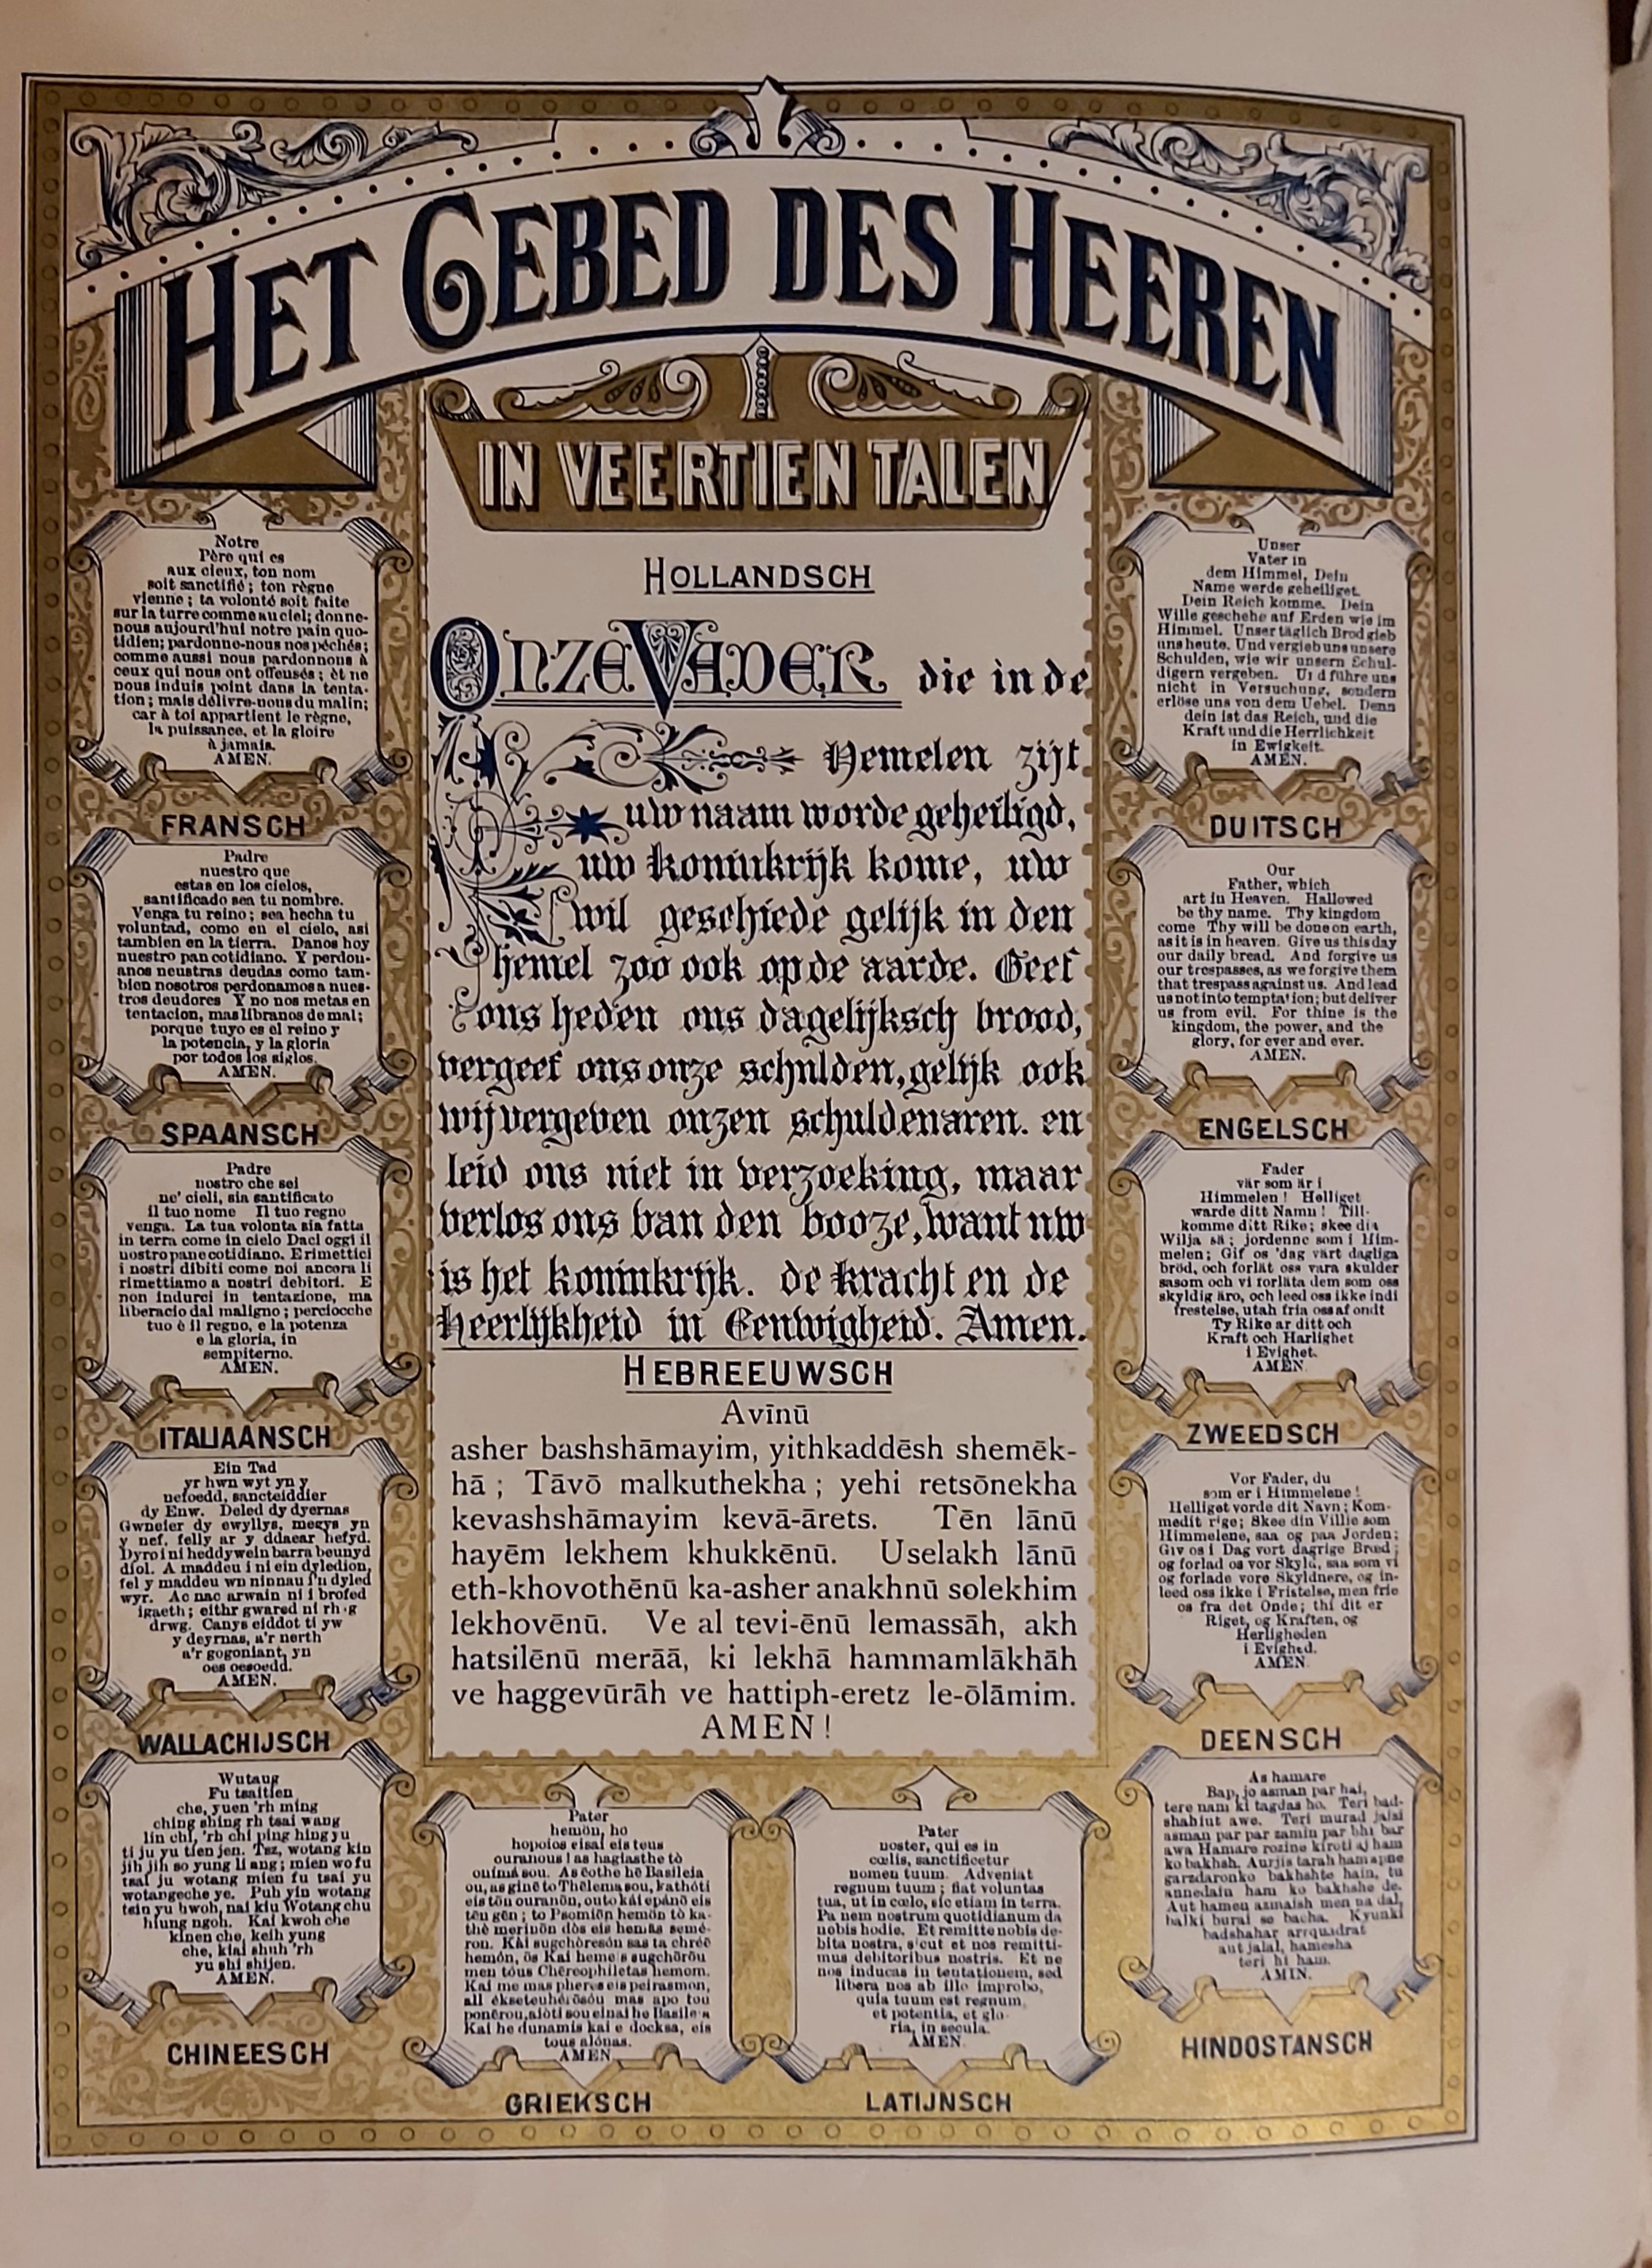 HET GEBED DES HEEREN
IN VEERTIEN TALEN
HOLLANDSCH
ONZE VADER die in de
Hemelen zijt
uw naam worde geheiligd,
uw koninkrijk kome, uw
wil geschiede gelijk in den
hemel zoo ook op de aarde. Geef
ons heden ons dagelijksch brood,
vergeef ons onze schulden, gelijk ook
wij vergeven onzen schuldenaren. en
leid ons niet in verzoeking, maar
verlos ons van den booze, want uw
is het koninkrijk. de kracht en de
Heerlijkheid in Eeuwigheid. Amen.
HEBREEUWSCH
Avīnū
asher bashshāmayim, yithkaddēsh shemēk-
hā ; Tāvō malkuthekha ; yehi retsōnekha
kevashshāmayim kevā-ārets. Tēn lānū
hayēm lekhem khukkēnū. Uselakh lānū
eth-khovothēnū ka-asher anakhnū solekhim
lekhovēnū. Ve al tevi-ēnū lemassāh, akh
hatsilēnū merāā, ki lekhā hammamlākhāh
ve haggevūrāh ve hattiph-eretz le-ōlāmim.
AMEN !
Notre
Père qui es
aux cieux, ton nom
soit sanctifié ; ton règne
vienne ; ta volonté soit faite
sur la turre comme au ciel; donne-
nous aujourd'hui notre pain quo-
tidien; pardonne-nous nos péchés;
comme aussi nous pardonnons à
ceux qui nous ont offensés ; èt ne
nous induis point dans la tenta-
tion ; mais délivre-nous du malin;
car à toi appartient le règne,
la puissance, et la gloire
à jamais.
AMEN.
FRANSCH
Padre
nuestro que
estas en los cielos,
santificado sea tu nombre.
Venga tu reino ; sea hecha tu
voluntad, como en el cielo, asi
tambien en la tierra. Danos hoy
nuestro pan cotidiano. Y perdon-
anos neustras deudas como tam-
bien nosotros perdonamos a nues-
tros deudores Y no nos metas en
tentacion, mas libranos de mal;
porque tuyo es el reino y
la potencia, y la gloria
por todos los siglos.
AMEN.
SPAANSCH
Padre
nostro che sei
ne' cieli, sia santificato
il tuo nome Il tuo regno
venga. La tua volonta sia fatta
in terra come in cielo Daci oggi il
nostro pane cotidiano. E rimettici
i nostri dibiti come noi ancora li
rimettiamo a nostri debitori. E
non indurci in tentazione, ma
liberacio dal maligno ; perciocche
tuo è il regno, e la potenza
e la gloria, in
sempiterno.
AMEN.
ITALIAANSCH
Ein Tad
yr hwn wyt yn y
nefoedd, sancteiddier
dy Enw. Deled dy dyernas
Gwneler dy ewyllys, megys yn
y nef, felly ar y ddaear hefyd.
Dyro i ni heddyw ein barra beunyd
diol. A maddeu i ni ein dyledion,
fel y maddeu wn ninnau i'n dyled
wyr. Ac nac arwain ni i brofed
igaeth ; eithr gwared ni rh g
drwg. Canys eiddot ti yw
y deyrnas, a'r nerth
a'r gogoniant, yn
oes oesoedd.
AMEN.
WALLACHIJSCH
Wutaug
Fu tsaitien
che, yuen 'rh ming
ching shing rh tsai wang
lin chi, 'rh chi ping hing yu
ti ju yu tien jen. Tsz, wotang kin
jih jih so yung li ang ; mien wo fu
tsai ju wotang mien fu tsai yu
wotangeche ye. Puh yin wotang
tsin yu hwoh, nai kiu Wotang chu
hiung ngoh. Kai kwoh che
kinen che, keih yung
che, kiai shuh 'rh
yu shi shijen.
AMEN.
CHINEESCH
Pater
hemōn, ho
hopoios eisai eis teus
ouranous ! as hagiasthe tò
ouimá sou. As eothe hē Basileia
ou, as ginē to Thèlema sou, kathôti
eis tōn ouranōn, outo kái epánō eis
tēu gēn ; to Psomiōn hemōn tò ka-
thē merinōn dòs eis hemâs semé-
ron. Kài sugchōresón sas ta chréē
hemón, ōs Kai heme s sugchōrōu
men tóus Chēreophiletas hemom.
Kai me mas pheres eis peirasmon,
all ekseteuhérōsóu mas apo tou
ponērou, aiōti sou einai he Basile a
Kai he dunamis kai e docksa, eis
tous alōnas.
AMEN
GRIEKSCH
Pater
noster, qui es in
cœlis, sanctificetur
nomen tuum. Adveniat
regnum tuum ; fiat voluntas
tua, ut in cœlo, sic etiam in terra.
Pa nem nostrum quotidianum da
nobis hodie. Et remitte nobis de-
bita nostra, s'cut et nos remitti-
mus debitoribus nostris. Et ne
nos inducas in tentationem, sed
libera nos ab illo improbo,
quia tuum est regnum,
et potentia, et glo-
ria, in secula.
AMEN
LATIJNSCH
Unser
Vater in
dem Himmel, Dein
Name werde geheiliget.
Dein Reich komme. Dein
Wille geschehe auf Erden wie im
Himmel. Unser täglich Brod gieb
uns heute. Und vergieb uns unsere
Schulden, wie wir unsern Schul-
digern vergeben. Ur d führe uns
nicht in Versuchung, sondern
erlöse uns von dem Uebel. Denn
dein ist das Reich, und die
Kraft und die Herrlichkeit
in Ewigkeit.
AMEN.
DUITSCH
Our
Father, which
art in Heaven. Hallowed
be thy name. Thy kingdom
come Thy will be done on earth,
as it is in heaven. Give us this day
our daily bread. And forgive us
our trespasses, as we forgive them
that trespass against us. And lead
us not into temptation; but deliver
us from evil. For thine is the
kingdom, the power, and the
glory, for ever and ever.
AMEN.
ENGELSCH
Fader
vår som är i
Himmelen ! Helliget
warde ditt Namn ! Till-
komme ditt Rike ; skee dit
Wilja så ; jordenne som i Him-
melen; Gif os 'dag vårt dagliga
bröd, och forlåt oss vara skulder
sasom och vi forläta dem som oss
skyldig äro, och leed oss ikke indi
frestelse, utah fria oss af ondt
Ty Rike ar ditt och
Kraft och Harlighet
i Evighet.
AMEN
ZWEEDSCH
Vor Fader, du
som er i Himmelene !
Helliget vorde dit Navn ; Kom-
medit rige; Skee din Villie som
Himmelene, saa og paa Jorden;
Giv os i Dag vort dagrige Brœd ;
og forlad os vor Skyld, saa som vi
og forlade vore Skyldnere, og in-
leed oss ikke i Fristelse, men frie
os fra det Onde ; thi dit er
Riget, og Kraften, og
Herligheden
i Evighed.
AMEN
DEENSCH
As hamare
Bap, jo asman par hai,
tere nam ki tagdas ho. Teri bad-
shahiut awe. Teri murad jaisi
asman par par zamin par bhi bar
awa Hamare rozine kiroti aj ham
ko bakhsh. Aurjis tarah ham apne
garzdaronko bakhshte hain, tu
annedain ham ko bakhshe de.
Aut hamen azmaish men na dal,
balki burai se bacha. Kyunki
badshahar arrquidrat
aut jalal, hamesha
teri hi ham.
AMIN.
HINDOSTANSCH